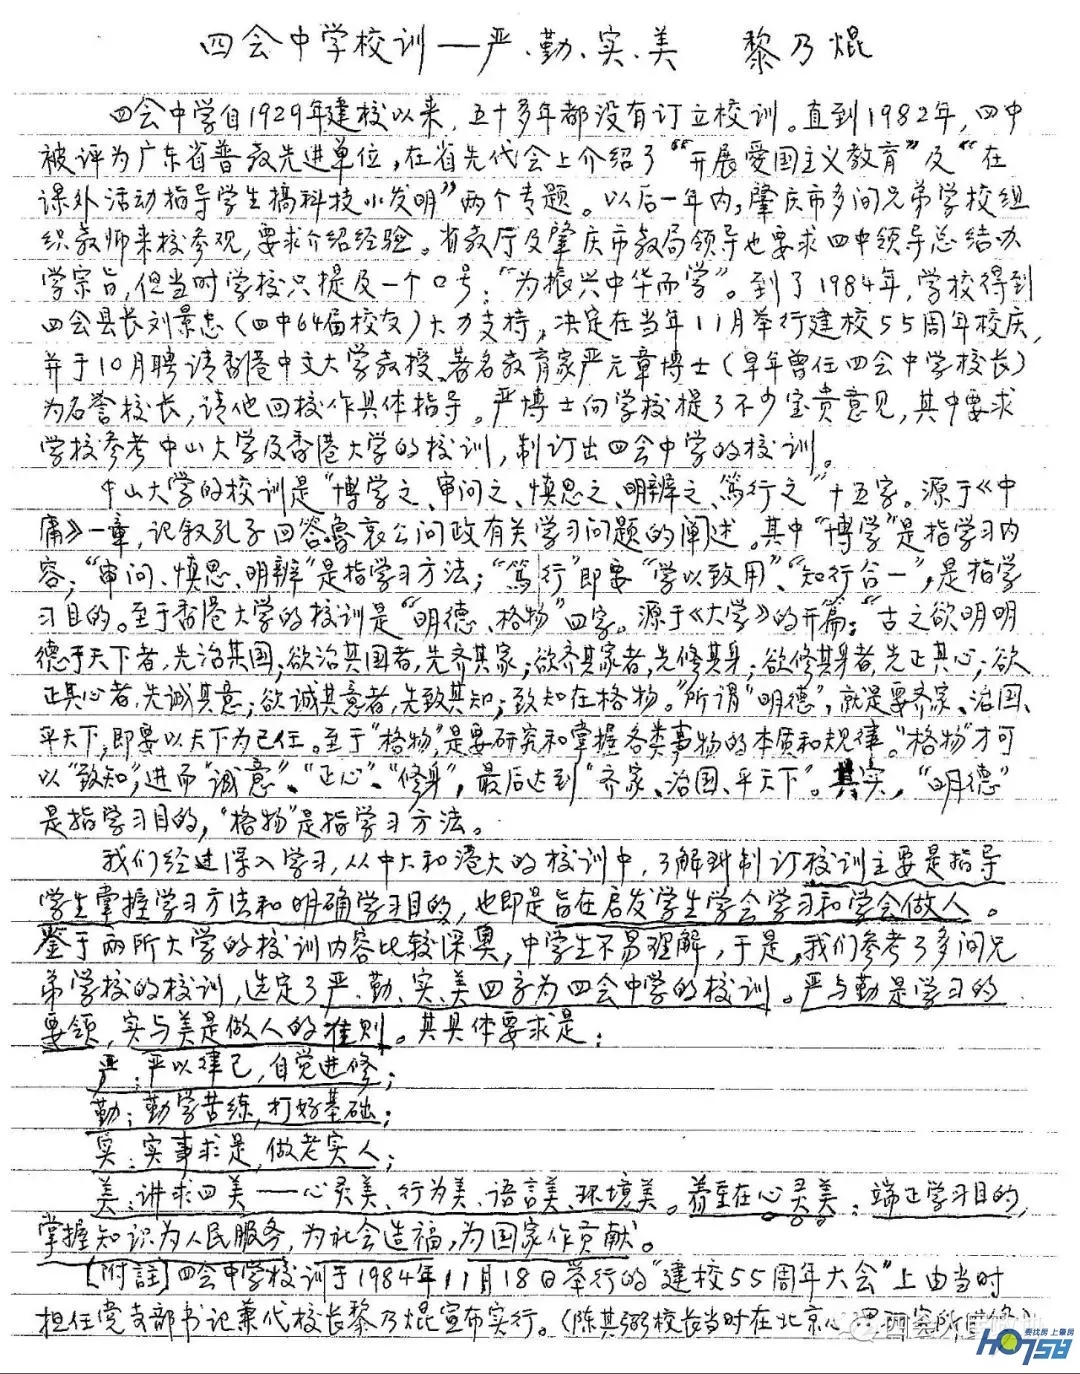 四会中学校训——严、勤、实、美　黎乃焜
四会中学自1929年建校以来，五十多年都没有订立校训。直到1982年，四中
被评为广东省普教先进单位，在省先代会上介绍了“开展爱国主义教育”及“在
课外活动指导学生搞科技小发明”两个专题。以后一年内，肇庆市多间兄弟学校组
织教师来校参观，要求介绍经验。省教厅及肇庆市教局领导也要求四中领导总结办
学宗旨，但当时学校只提及一个口号：“为振兴中华而学”。到了1984年，学校得到
四会县长刘景忠（四中64届校友）大力支持，决定在当年11月举行建校55周年校庆，
并于10月聘请香港中文大学教授、著名教育家严元章博士（早年曾任四会中学校长）
为名誉校长，请他回校作具体指导。严博士向学校提了不少宝贵意见，其中要求
学校参考中山大学及香港大学的校训，制订出四会中学的校训。
中山大学的校训是“博学之、审问之、慎思之、明辨之、笃行之”十五字。源于《中
庸》一章，记叙孔子回答鲁哀公问政有关学习问题的阐述。其中“博学”是指学习内
容；“审问、慎思、明辨”是指学习方法；“笃行”即要“学以致用”、“知行合一”，是指学
习目的。至于香港大学的校训是“明德、格物”四字。源于《大学》的开篇：“古之欲明明
德于天下者，先治其国，欲治其国者，先齐其家；欲齐其家者，先修其身；欲修其身者，先正其心；欲
正其心者，先诚其意；欲诚其意者，先致其知；致知在格物。”所谓“明德”，就是要齐家、治国、
平天下，即要以天下为己任。至于“格物”，是要研究和掌握各类事物的本质和规律。“格物”才可
以“致知”，进而“诚意”、“正心”、“修身”，最后达到“齐家、治国、平天下”。其实，“明德”
是指学习目的，“格物”是指学习方法。
我们经过深入学习，从中大和港大的校训中，了解到制订校训主要是指导
学生掌握学习方法和明确学习目的，也即是旨在启发学生学会学习和学会做人。
鉴于两所大学的校训内容比较深奥，中学生不易理解，于是，我们参考了多间兄
弟学校的校训，选定了严、勤、实、美四字为四会中学的校训。严与勤是学习的
要领，实与美是做人的准则。其具体要求是：
严：严以律己，自觉进修；
勤：勤学苦练，打好基础；
实：实事求是，做老实人；
美：讲求四美——心灵美、行为美、语言美、环境美。着重在心灵美：端正学习目的，
掌握知识为人民服务，为社会造福，为国家作贡献。
〔附註〕四会中学校训于1984年11月18日举行的“建校55周年大会”上由当时
担任党支部书记兼代校长黎乃焜宣布实行。（陈其弼校长当时在北京心理研究所进修）
要找房 上肇房
HO758